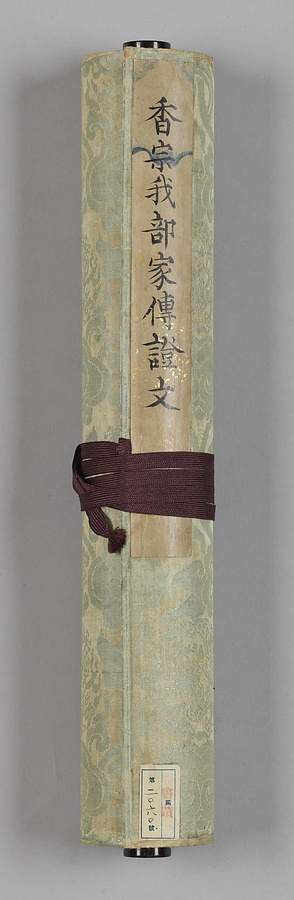 香宗我部家傳證文
第二〇六〇號